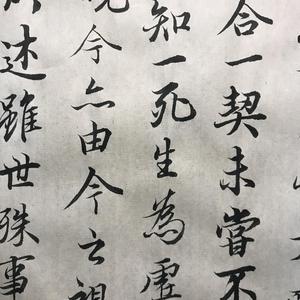 合一契未嘗不
知一死生為虛
視今亦由今之視
所述雖世殊事